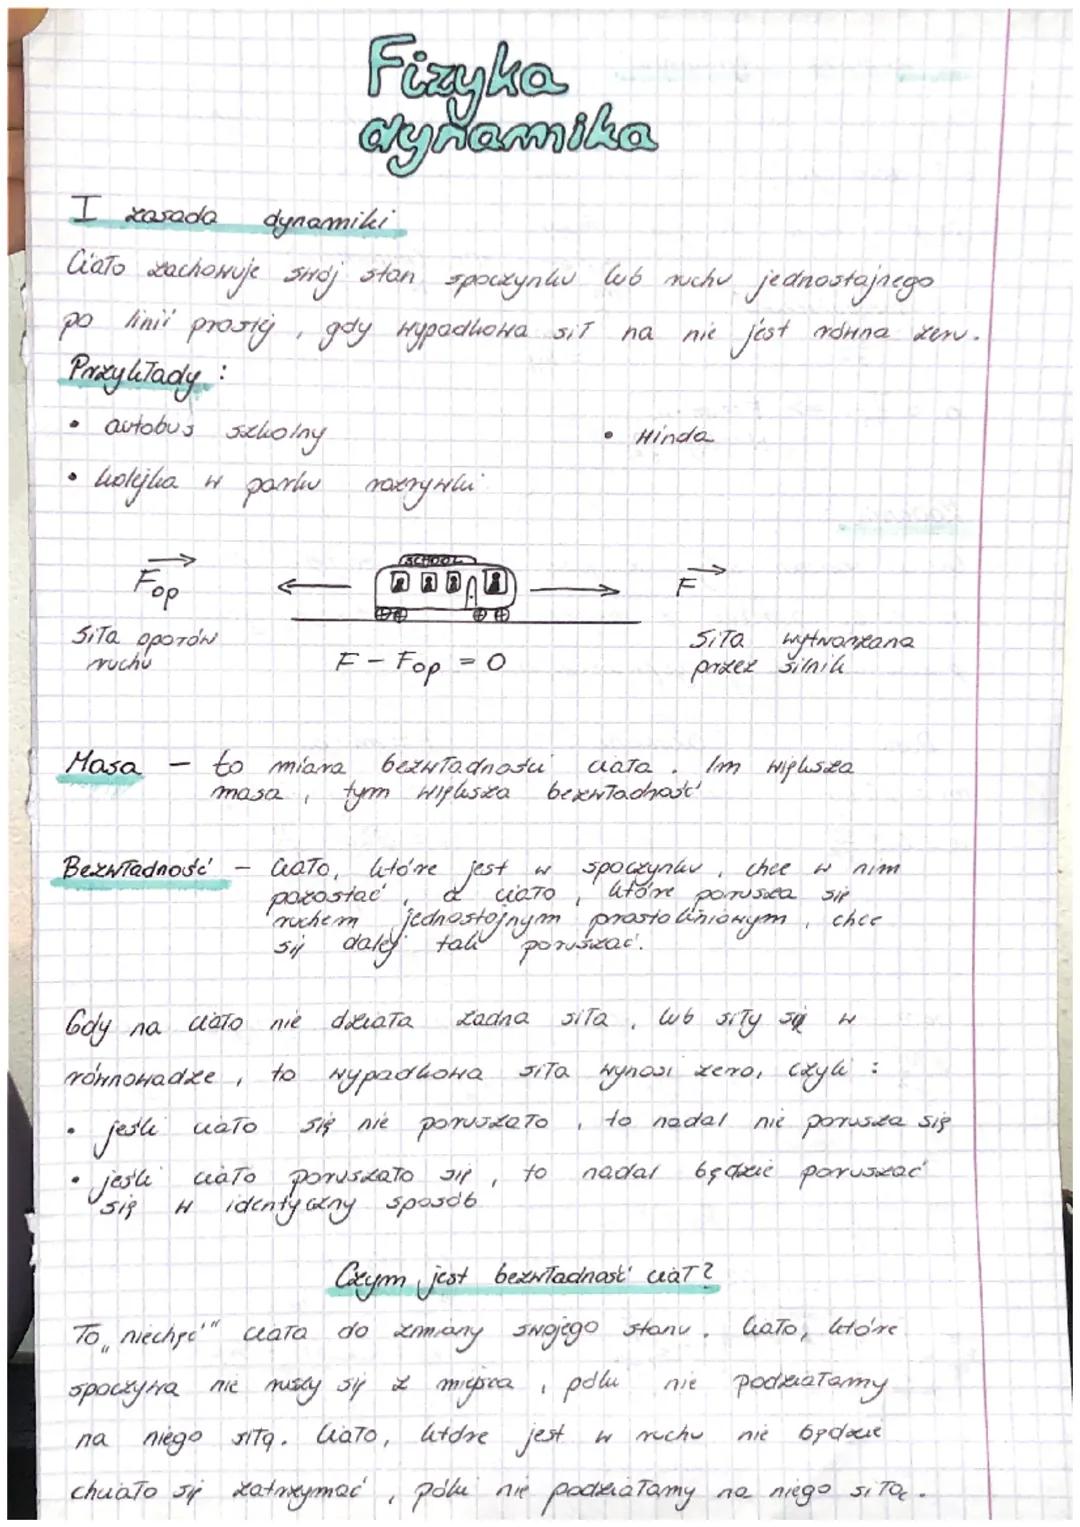 Fizyka
dynamika
I zasada dynamiki
Ciało zachowuje swój stan spoczynku lub ruchu jednostajnego
po linii prostej, gdy wypadkowa sił na nie jest równa zeru.
Przykłady:
• autobus szkolny • winda
• kolejka w parku rozrywki
SCHOOL
Fop F
Siła oporów ruchu
F - Fop = 0
Siła wytwarzana przez silnik
Masa - to miara bezwładności ciała. Im większa
masa, tym większa bezwładność
Bezwładność - Ciało, które jest w spoczynku, chce w nim
pozostać, a ciało, które porusza się
ruchem jednostajnym prostoliniowym, chce
się dalej tak poruszać.
Gdy na ciało nie działa żadna siła, lub siły są w
równowadze, to wypadkowa siła wynosi zero, czyli:
• jeśli ciało się nie poruszało, to nadal nie porusza się
• jeśli ciało poruszało się, to nadal będzie poruszać
się w identyczny sposób
Czym jest bezwładność ciał?
To „niechęć" ciała do zmiany swojego stanu. Ciało, które
spoczywa nie ruszy się z miejsca, póki nie podziałamy
na niego siłą. Ciało, które jest w ruchu nie będzie
chciało się zatrzymać, póki nie podziałamy na niego siłą.